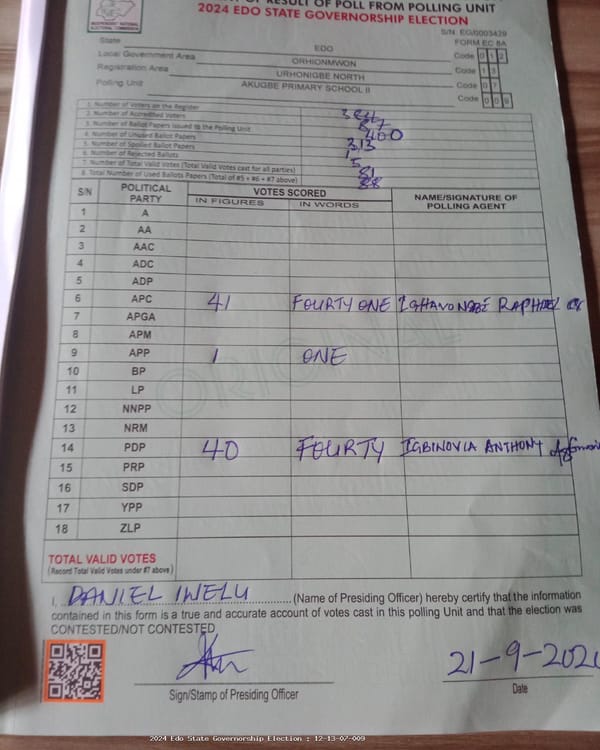 OF RESULT OF POLL FROM POLLING UNIT
2024 EDO STATE GOVERNORSHIP ELECTION
INDEPENDENT NATIONAL
ELECTORAL COMMISSION
S/N EG/0003429
FORM EC 8A
State EDO Code 0 1 2
Local Government Area ORHIONMWON Code 1 3
Registration Area URHONIGBE NORTH Code 0 7
Polling Unit AKUGBE PRIMARY SCHOOL II Code 0 0 9
1. Number of Voters on the Register
2. Number of Accredited Voters 87
3. Number of Ballot Papers Issued to the Polling Unit 400
4. Number of Unused Ballot Papers 313
5. Number of Spoiled Ballot Papers 1
6. Number of Rejected Ballots 5
7. Number of Total Valid Votes (Total Valid Votes cast for all parties)
8. Total Number of Used Ballots Papers (Total of #5 + #6 + #7 above)
S/N POLITICAL PARTY VOTES SCORED NAME/SIGNATURE OF POLLING AGENT
IN FIGURES IN WORDS
1 A
2 AA
3 AAC
4 ADC
5 ADP
6 APC 41 FOURTY ONE IGHAVONGBE RAPHAEL
7 APGA
8 APM
9 APP 1 ONE
10 BP
11 LP
12 NNPP
13 NRM
14 PDP 40 FOURTY IGBINOVIA ANTHONY
15 PRP
16 SDP
17 YPP
18 ZLP
ORIGINAL
TOTAL VALID VOTES
(Record Total Valid Votes under #7 above)
I, DANIEL IWELU (Name of Presiding Officer) hereby certify that the information
contained in this form is a true and accurate account of votes cast in this polling Unit and that the election was
CONTESTED/NOT CONTESTED
21-9-202
Sign/Stamp of Presiding Officer Date
2024 Edo State Governorship Election : 12-13-07-009